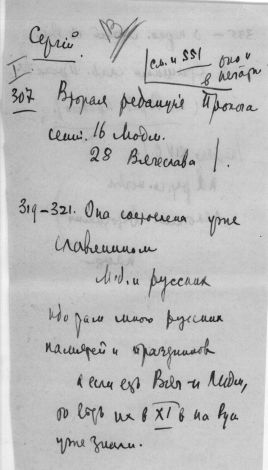 Сергій.
см. и 551
оно
в печати
I.
307 Вторая редакция Пролога
сент. 16 Людм.
28 Вячеслава
319–321. Она составлена уже
славянином
Люд. и русским
ибо там много русских
памятей и праздников
и если есть Вяч и Людм,
то ведь их в XI в на Руси
уже знали.